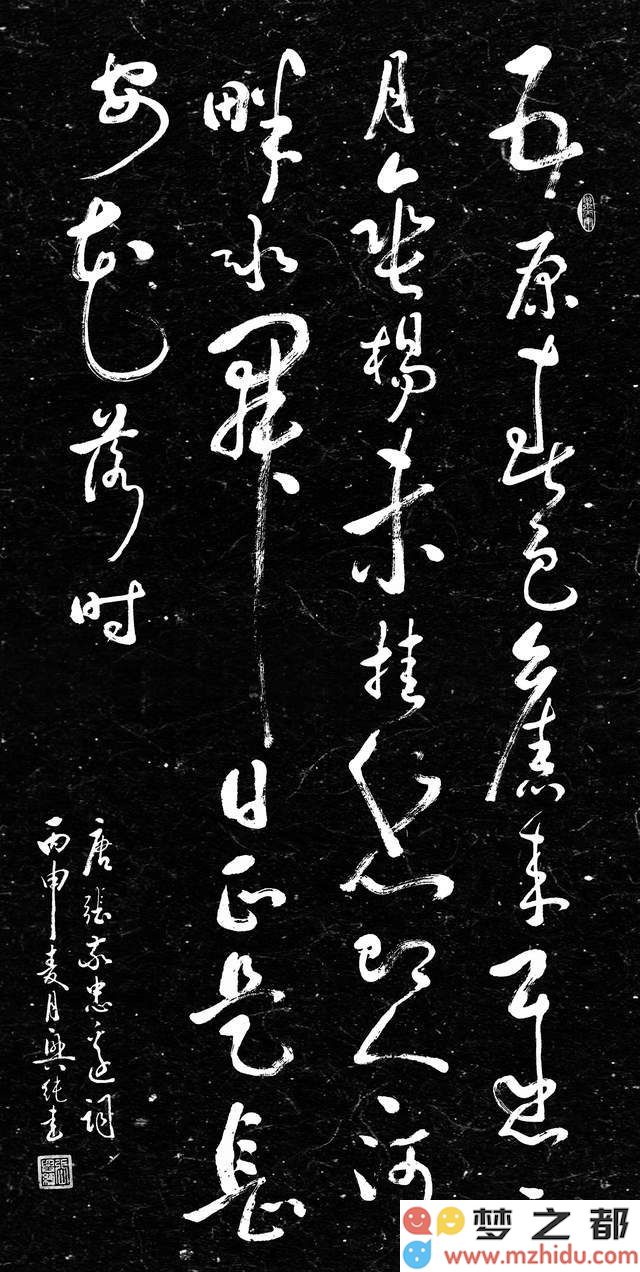 五原春色舊来遲二
月垂楊未挂絲即今河
畔冰開日正是長
安花落时
唐張敬忠邊詞
丙申麦月興纯书
梦之都
www.mzhidu.com